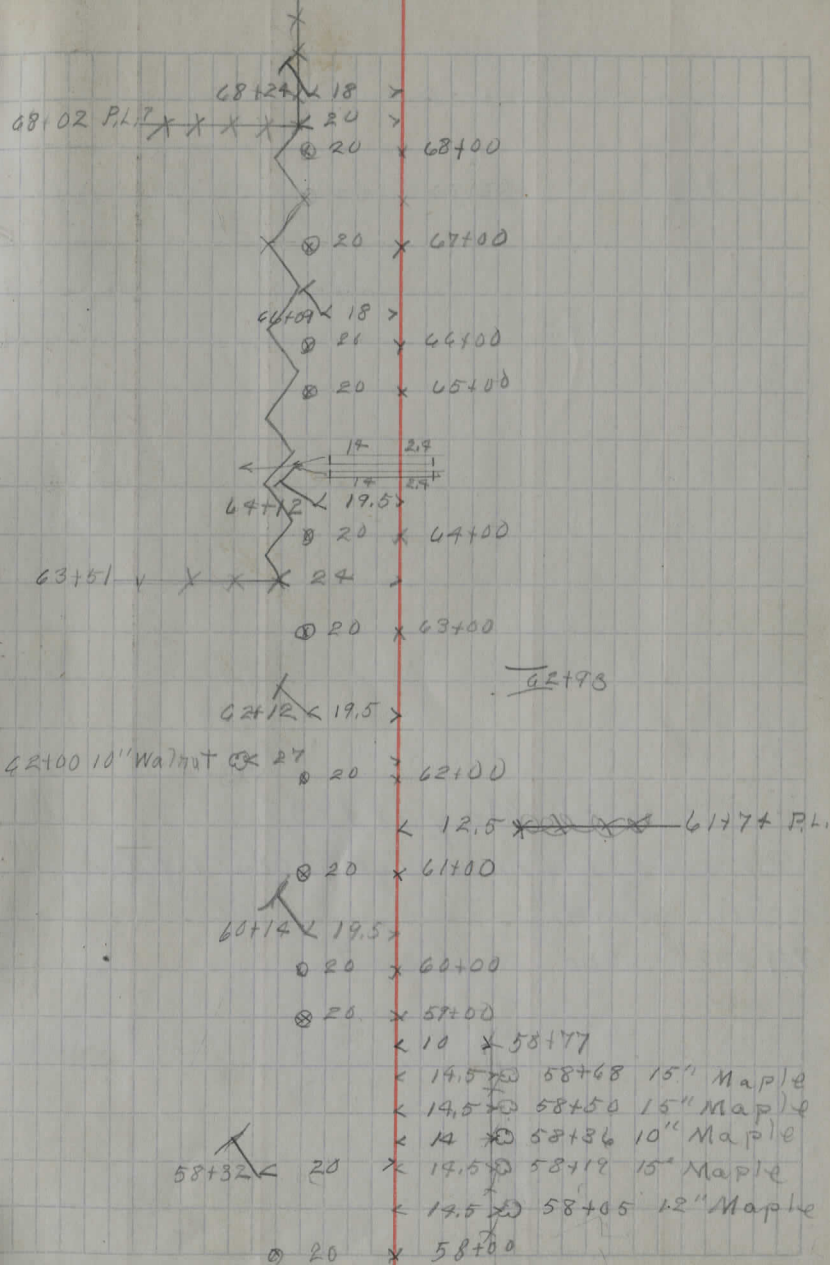 68+24 18
68+02 P.L.? 20
20 68+00
20 67+00
66+09 18
20 66+00
20 65+00
14 2.4
14 2.4
64+12 19.5
20 64+00
63+51 24
20 63+00
62+93
62+12 19.5
62+00 10" Walnut 27
20 62+00
12.5 61+74 P.L.
20 61+00
60+14 19.5
20 60+00
20 59+00
10 58+77
14.5 58+68 15" Maple
14.5 58+50 15" Maple
14 58+36 10" Maple
58+32 20 14.5 58+19 15" Maple
14.5 58+05 12" Maple
20 58+00